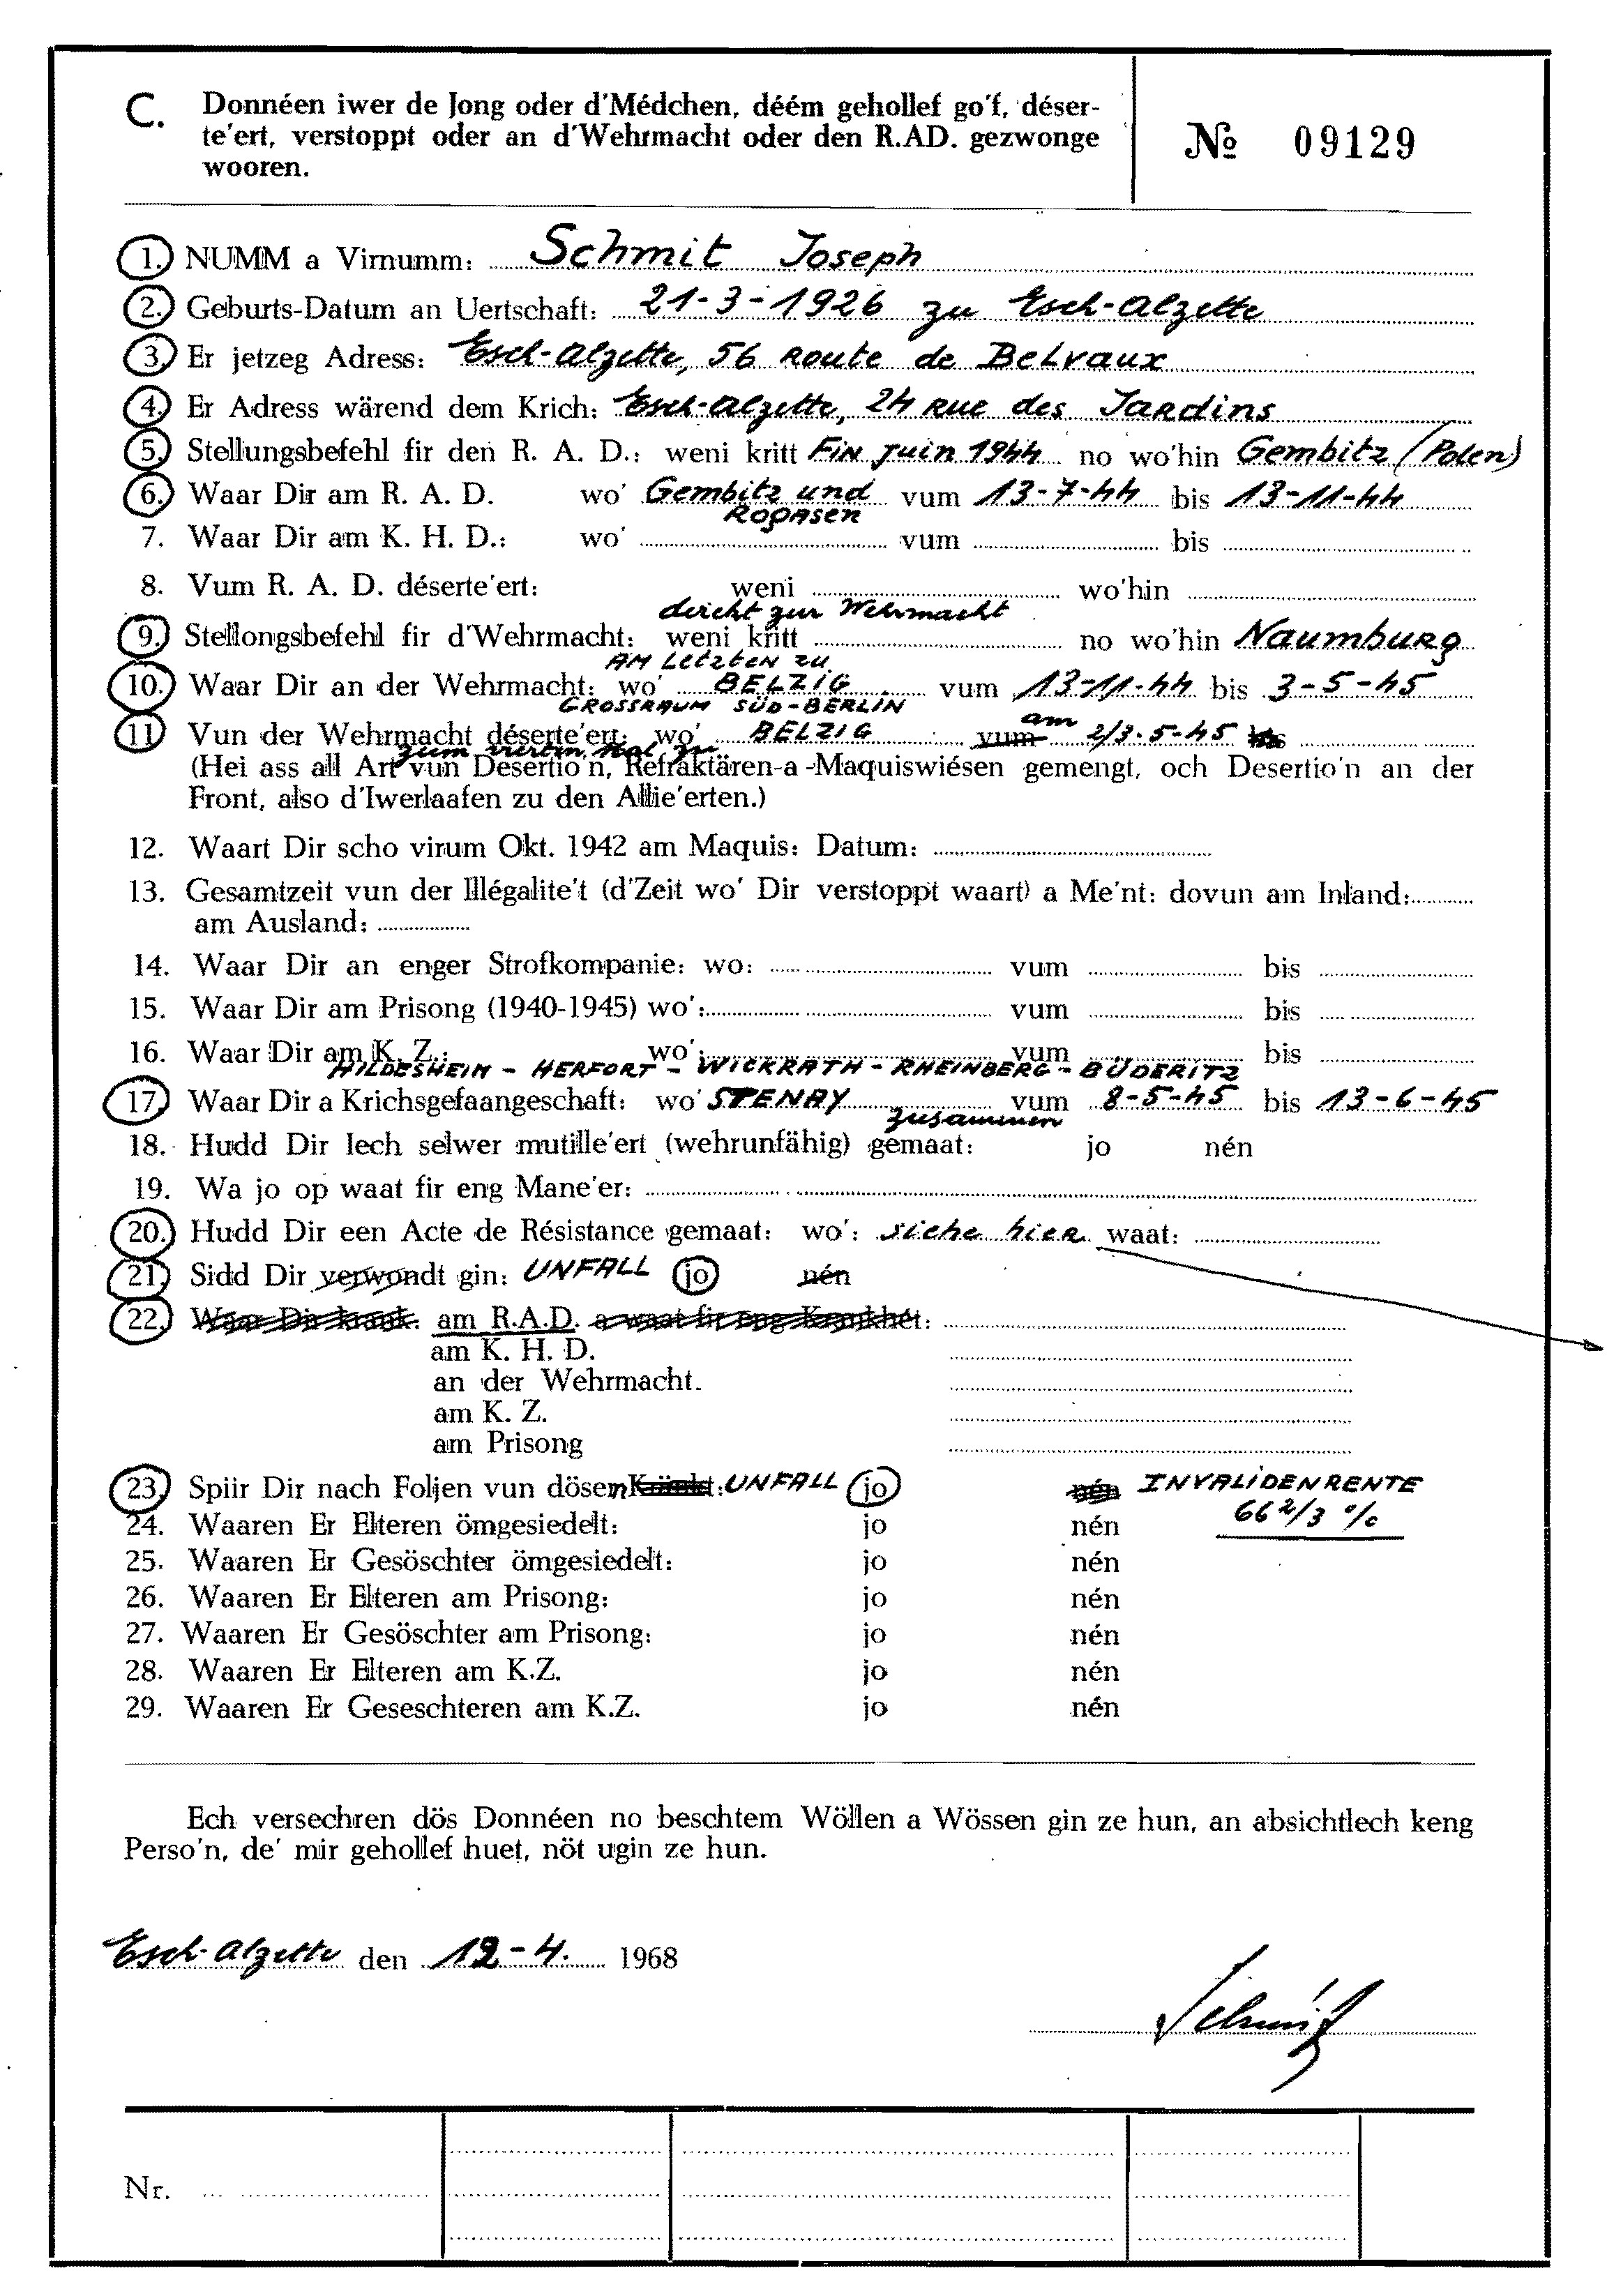 C. Donnéen iwer de Jong oder d'Médchen, déém gehollef go'f, déser-
te'ert, verstoppt oder an d'Wehrmacht oder den R.AD. gezwonge
wooren.
№ 09129
1. NUMM a Virnumm: Schmit Joseph
2. Geburts-Datum an Uertschaft: 21-3-1926 zu Esch-Alzette
3. Er jetzeg Adress: Esch-Alzette, 56 Route de BeLvaux
4. Er Adress wärend dem Krich: Esch-Alzette, 24 Rue des Jardins
5. Stellungsbefehl fir den R. A. D.: weni kritt Fin juin 1944 no wo'hin Gembitz (Polen)
6. Waar Dir am R. A. D. wo' Gembitz und vum 13-7-44 bis 13-11-44
Rogasen
7. Waar Dir am K. H. D.: wo' vum bis
8. Vum R. A. D. déserte'ert: weni wo'hin
direkt zur Wehrmacht
9. Stellongsbefehl fir d'Wehrmacht: weni kritt no wo'hin Naumburg
AM Letzten zu
10. Waar Dir an der Wehrmacht: wo' BELZIG vum 13-11-44 bis 3-5-45
GROSSRAUM SÜD-BERLIN
11. Vun der Wehrmacht déserte'ert: wo' BELZIG vum am 2/3-5-45 bis
zum vierten Mal zu
(Hei ass all Art vun Desertio'n, Refraktären-a-Maquiswiésen gemengt, och Desertio'n an der
Front, also d'Iwerlaafen zu den Allie'erten.)
12. Waart Dir scho virum Okt. 1942 am Maquis: Datum:
13. Gesamtzeit vun der Illégalite't (d'Zeit wo' Dir verstoppt waart) a Me'nt: dovun am Inland:
am Ausland:
14. Waar Dir an enger Strofkompanie: wo: vum bis
15. Waar Dir am Prisong (1940-1945) wo': vum bis
16. Waar Dir am K. Z.: wo': vum bis
HILDESHEIM - HERFORT - WICKRATH - RHEINBERG - BÜDERITZ
17. Waar Dir a Krichsgefaangeschaft: wo' STENAY vum 8-5-45 bis 13-6-45
zusammen
18. Hudd Dir Iech selwer mutille'ert (wehrunfähig) gemaat: jo nén
19. Wa jo op waat fir eng Mane'er:
20. Hudd Dir een Acte de Résistance gemaat: wo': siehe hier waat:
21. Sidd Dir verwondt gin: UNFALL jo nén
22. Waar Dir krank: am R.A.D. a waat fir eng Krankhét:
am K. H. D.
an der Wehrmacht.
am K. Z.
am Prisong
23. Spiir Dir nach Foljen vun dösem UNFALL jo nén INVALIDENRENTE
66 2/3 %
24. Waaren Er Elteren ömgesiedelt: jo nén
25. Waaren Er Gesöschter ömgesiedelt: jo nén
26. Waaren Er Elteren am Prisong: jo nén
27. Waaren Er Gesöschter am Prisong: jo nén
28. Waaren Er Elteren am K.Z. jo nén
29. Waaren Er Geseschteren am K.Z. jo nén
Ech versechren dös Donnéen no beschtem Wöllen a Wössen gin ze hun, an absichtlech keng
Perso'n, de' mir gehollef huet, nöt ugin ze hun.
Esch-Alzette den 12-4. 1968
Schmit
Nr.